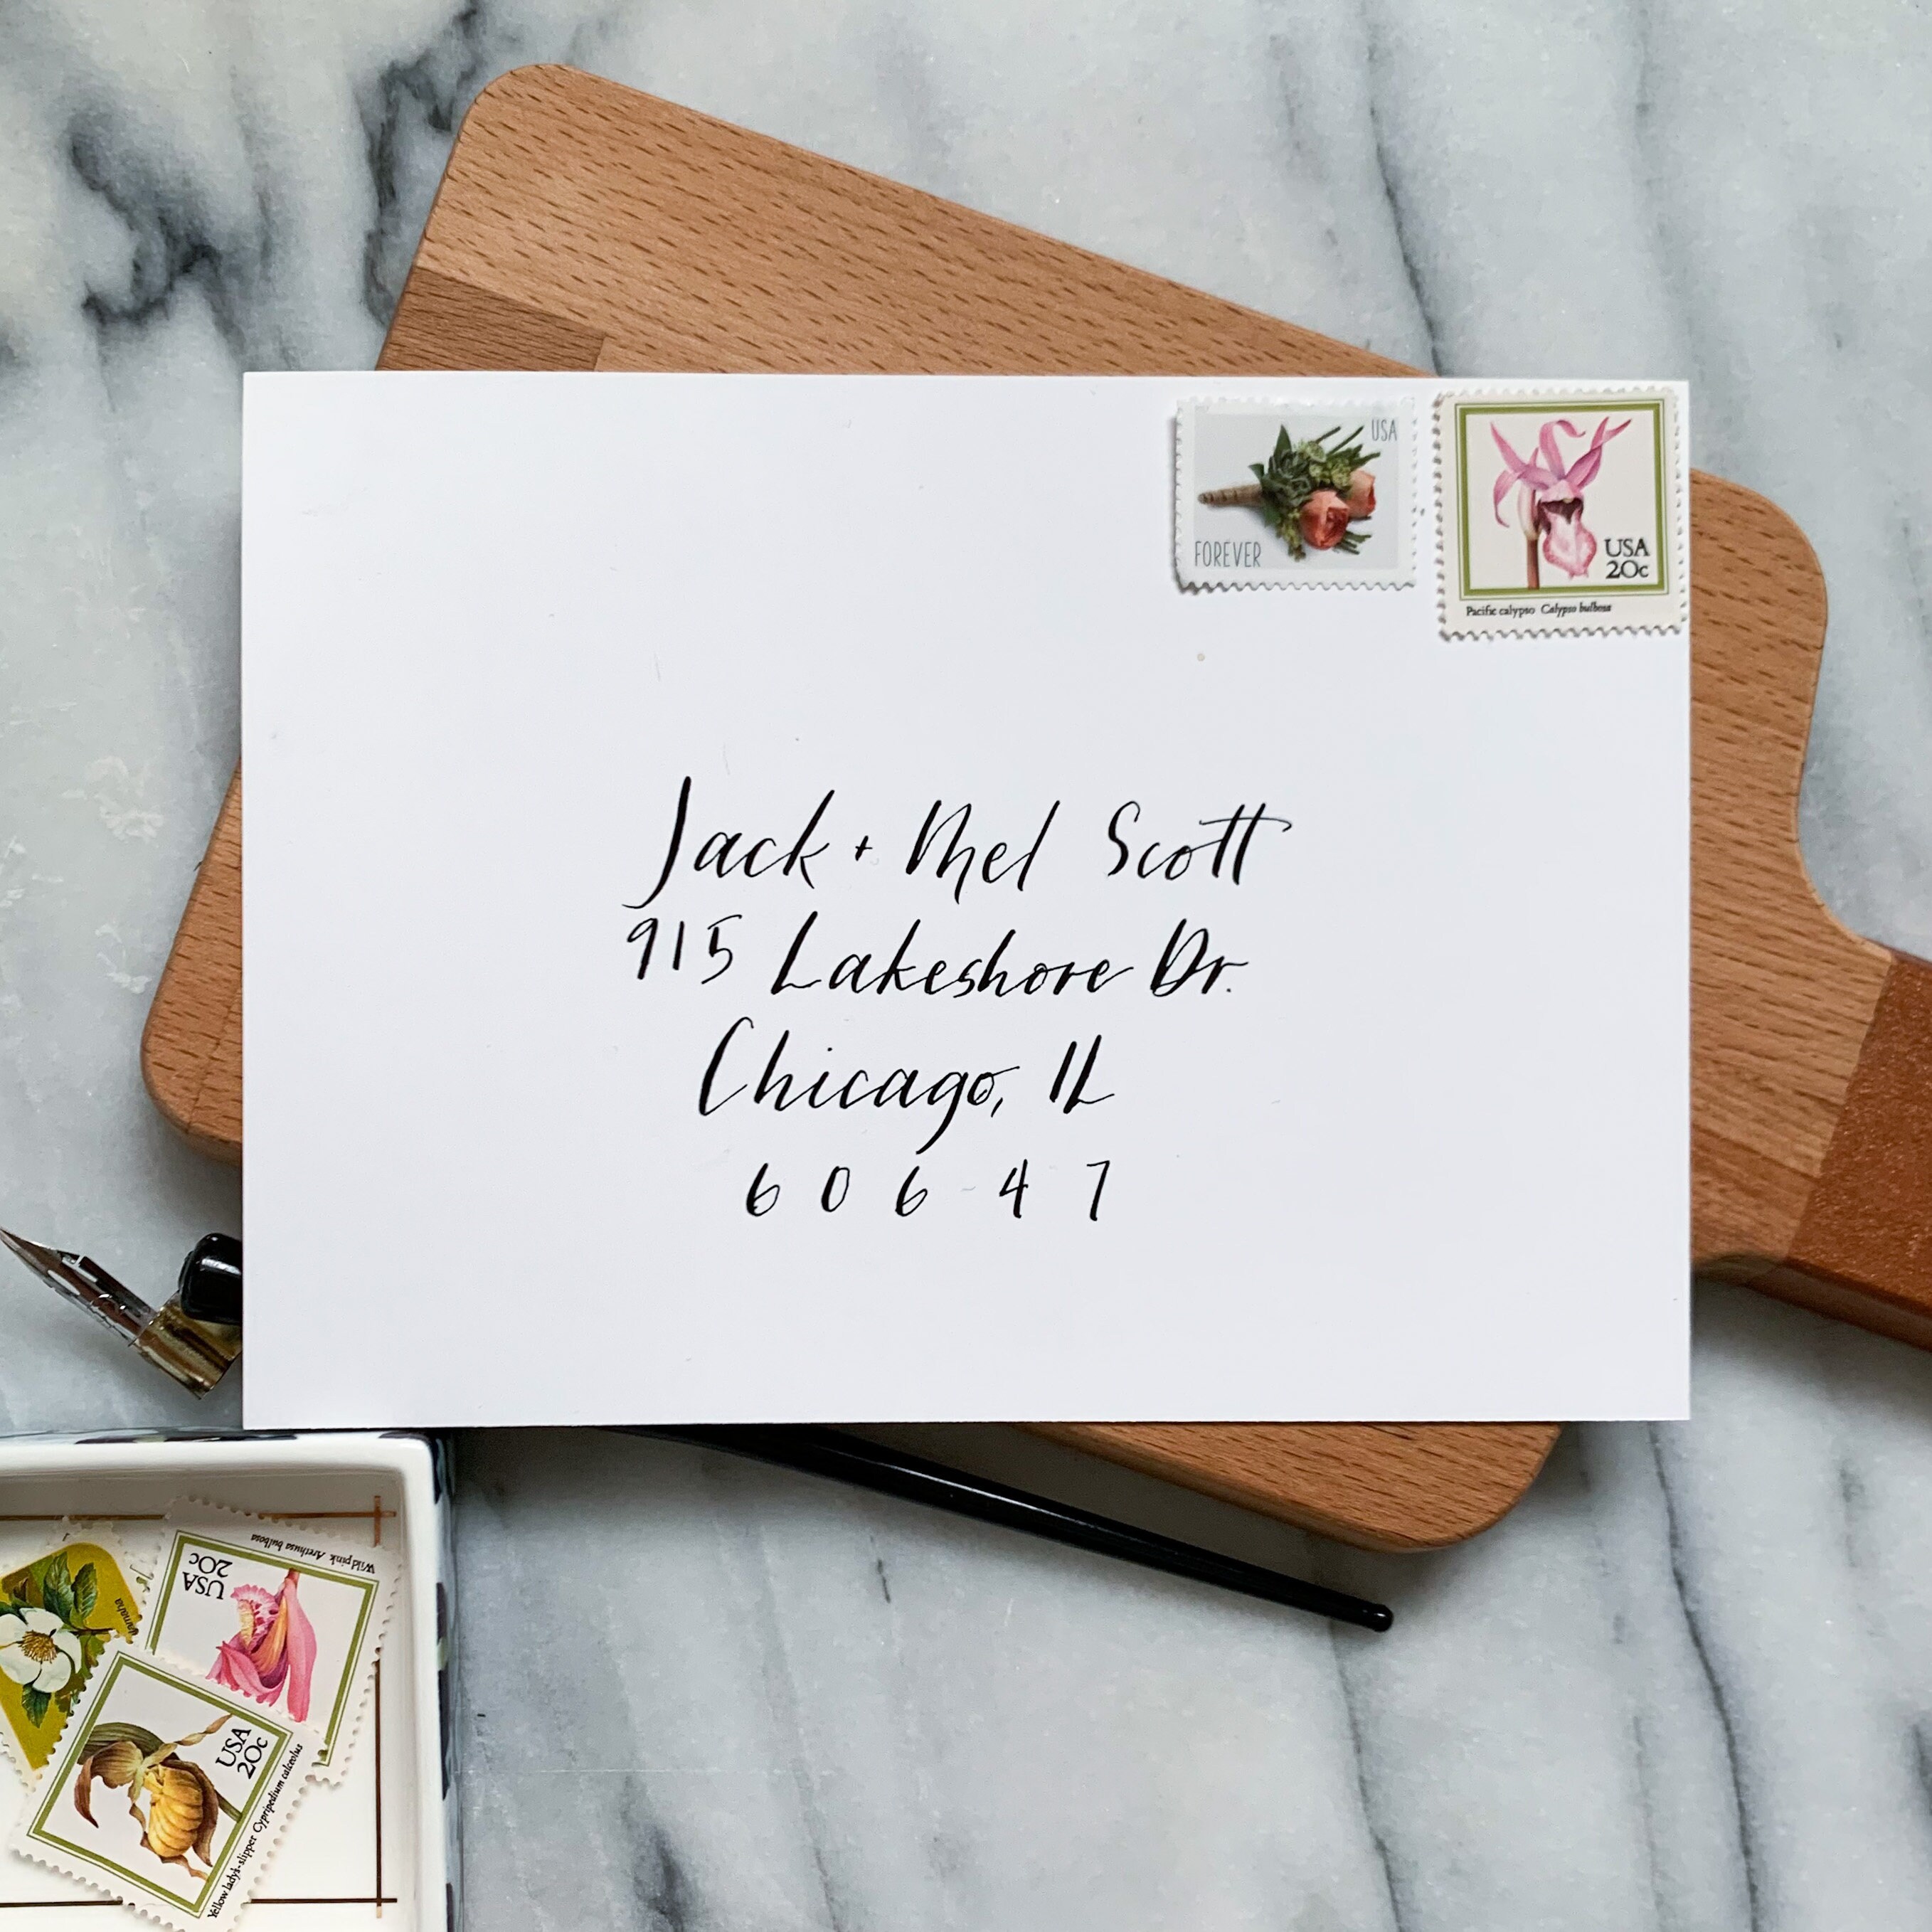 USA
FOREVER
USA
20c
Pacific calypso Calypso bulbosa
Jack + Mel Scott
915 Lakeshore Dr.
Chicago, IL
6 0 6 4 7
Wild pink Arethusa bulbosa
USA
20c
USA
20c
Yellow lady's-slipper Cypripedium calceolus